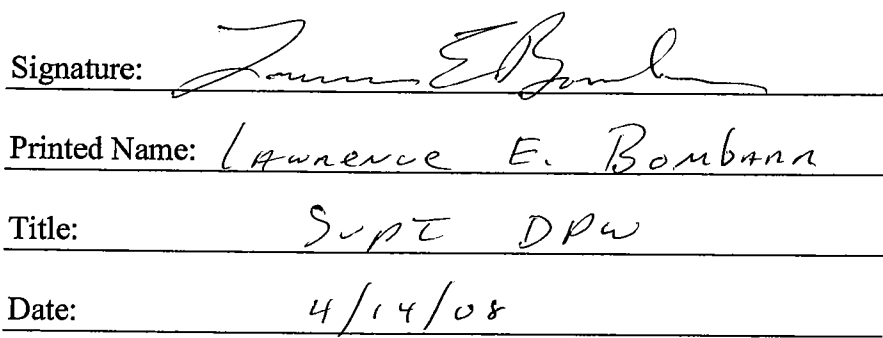 Signature: Lawrence E Bombara
Printed Name: Lawrence E. Bombara
Title: Supt DPW
Date: 4/14/08